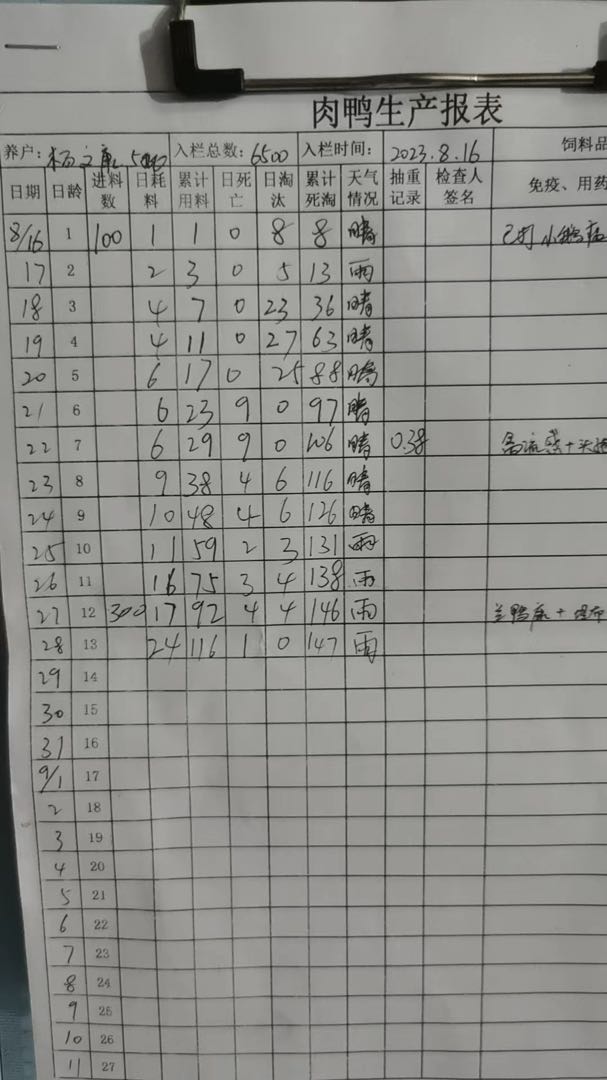 肉鸭生产报表
养户: 杨文 入栏总数: 6500 入栏时间: 2023.8.16 饲料品
日期 日龄 进料数 日耗料 累计用料 日死亡 日淘汰 累计死淘 天气情况 抽重记录 检查人签名 免疫、用药
8/16 1 100 1 1 0 8 8 晴 已打小鹅瘟
17 2 2 3 0 5 13 雨
18 3 4 7 0 23 36 晴
19 4 4 11 0 27 63 晴
20 5 6 17 0 25 88 晴
21 6 6 23 9 0 97 晴
22 7 6 29 9 0 106 晴 0.38 禽流感+
23 8 9 38 4 6 116 晴
24 9 10 48 4 6 126 晴
25 10 11 59 2 3 131 雨
26 11 16 75 3 4 138 雨
27 12 300 17 92 4 4 146 雨 鸭瘟+
28 13 24 116 1 0 147 雨
29 14
30 15
31 16
9/1 17
2 18
3 19
4 20
5 21
6 22
7 23
8 24
9 25
10 26
11 27